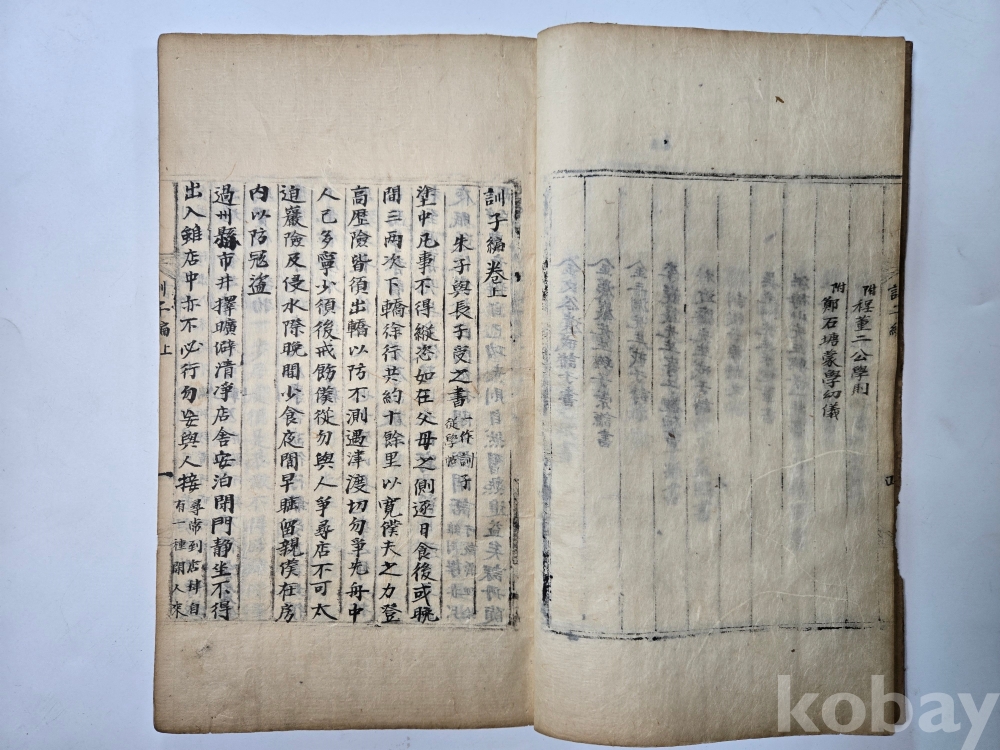 附程董二公學則
附鄭石塘蒙學幼儀
訓子編卷上
朱子與長子受之書 一作訓子從學帖
塗中凡事不得縱恣如在父母之側逐日食後或晚
間三兩次下轎徐行共約十餘里以寬僕夫之力登
高歷險皆須出轎以防不測遇津渡切勿爭先舟中
人已多寧少須後戒飭僕從勿與人爭尋店不可太
迫巖險及侵水際晚間少食夜間早睡留親僕在房
內以防冦盜
過州縣市井擇曠僻清凈店舍安泊閉門静坐不得
出入雖店中亦不必行勿妄與人接 尋常到店肆自有一種閑人來
訓子編上
kobay